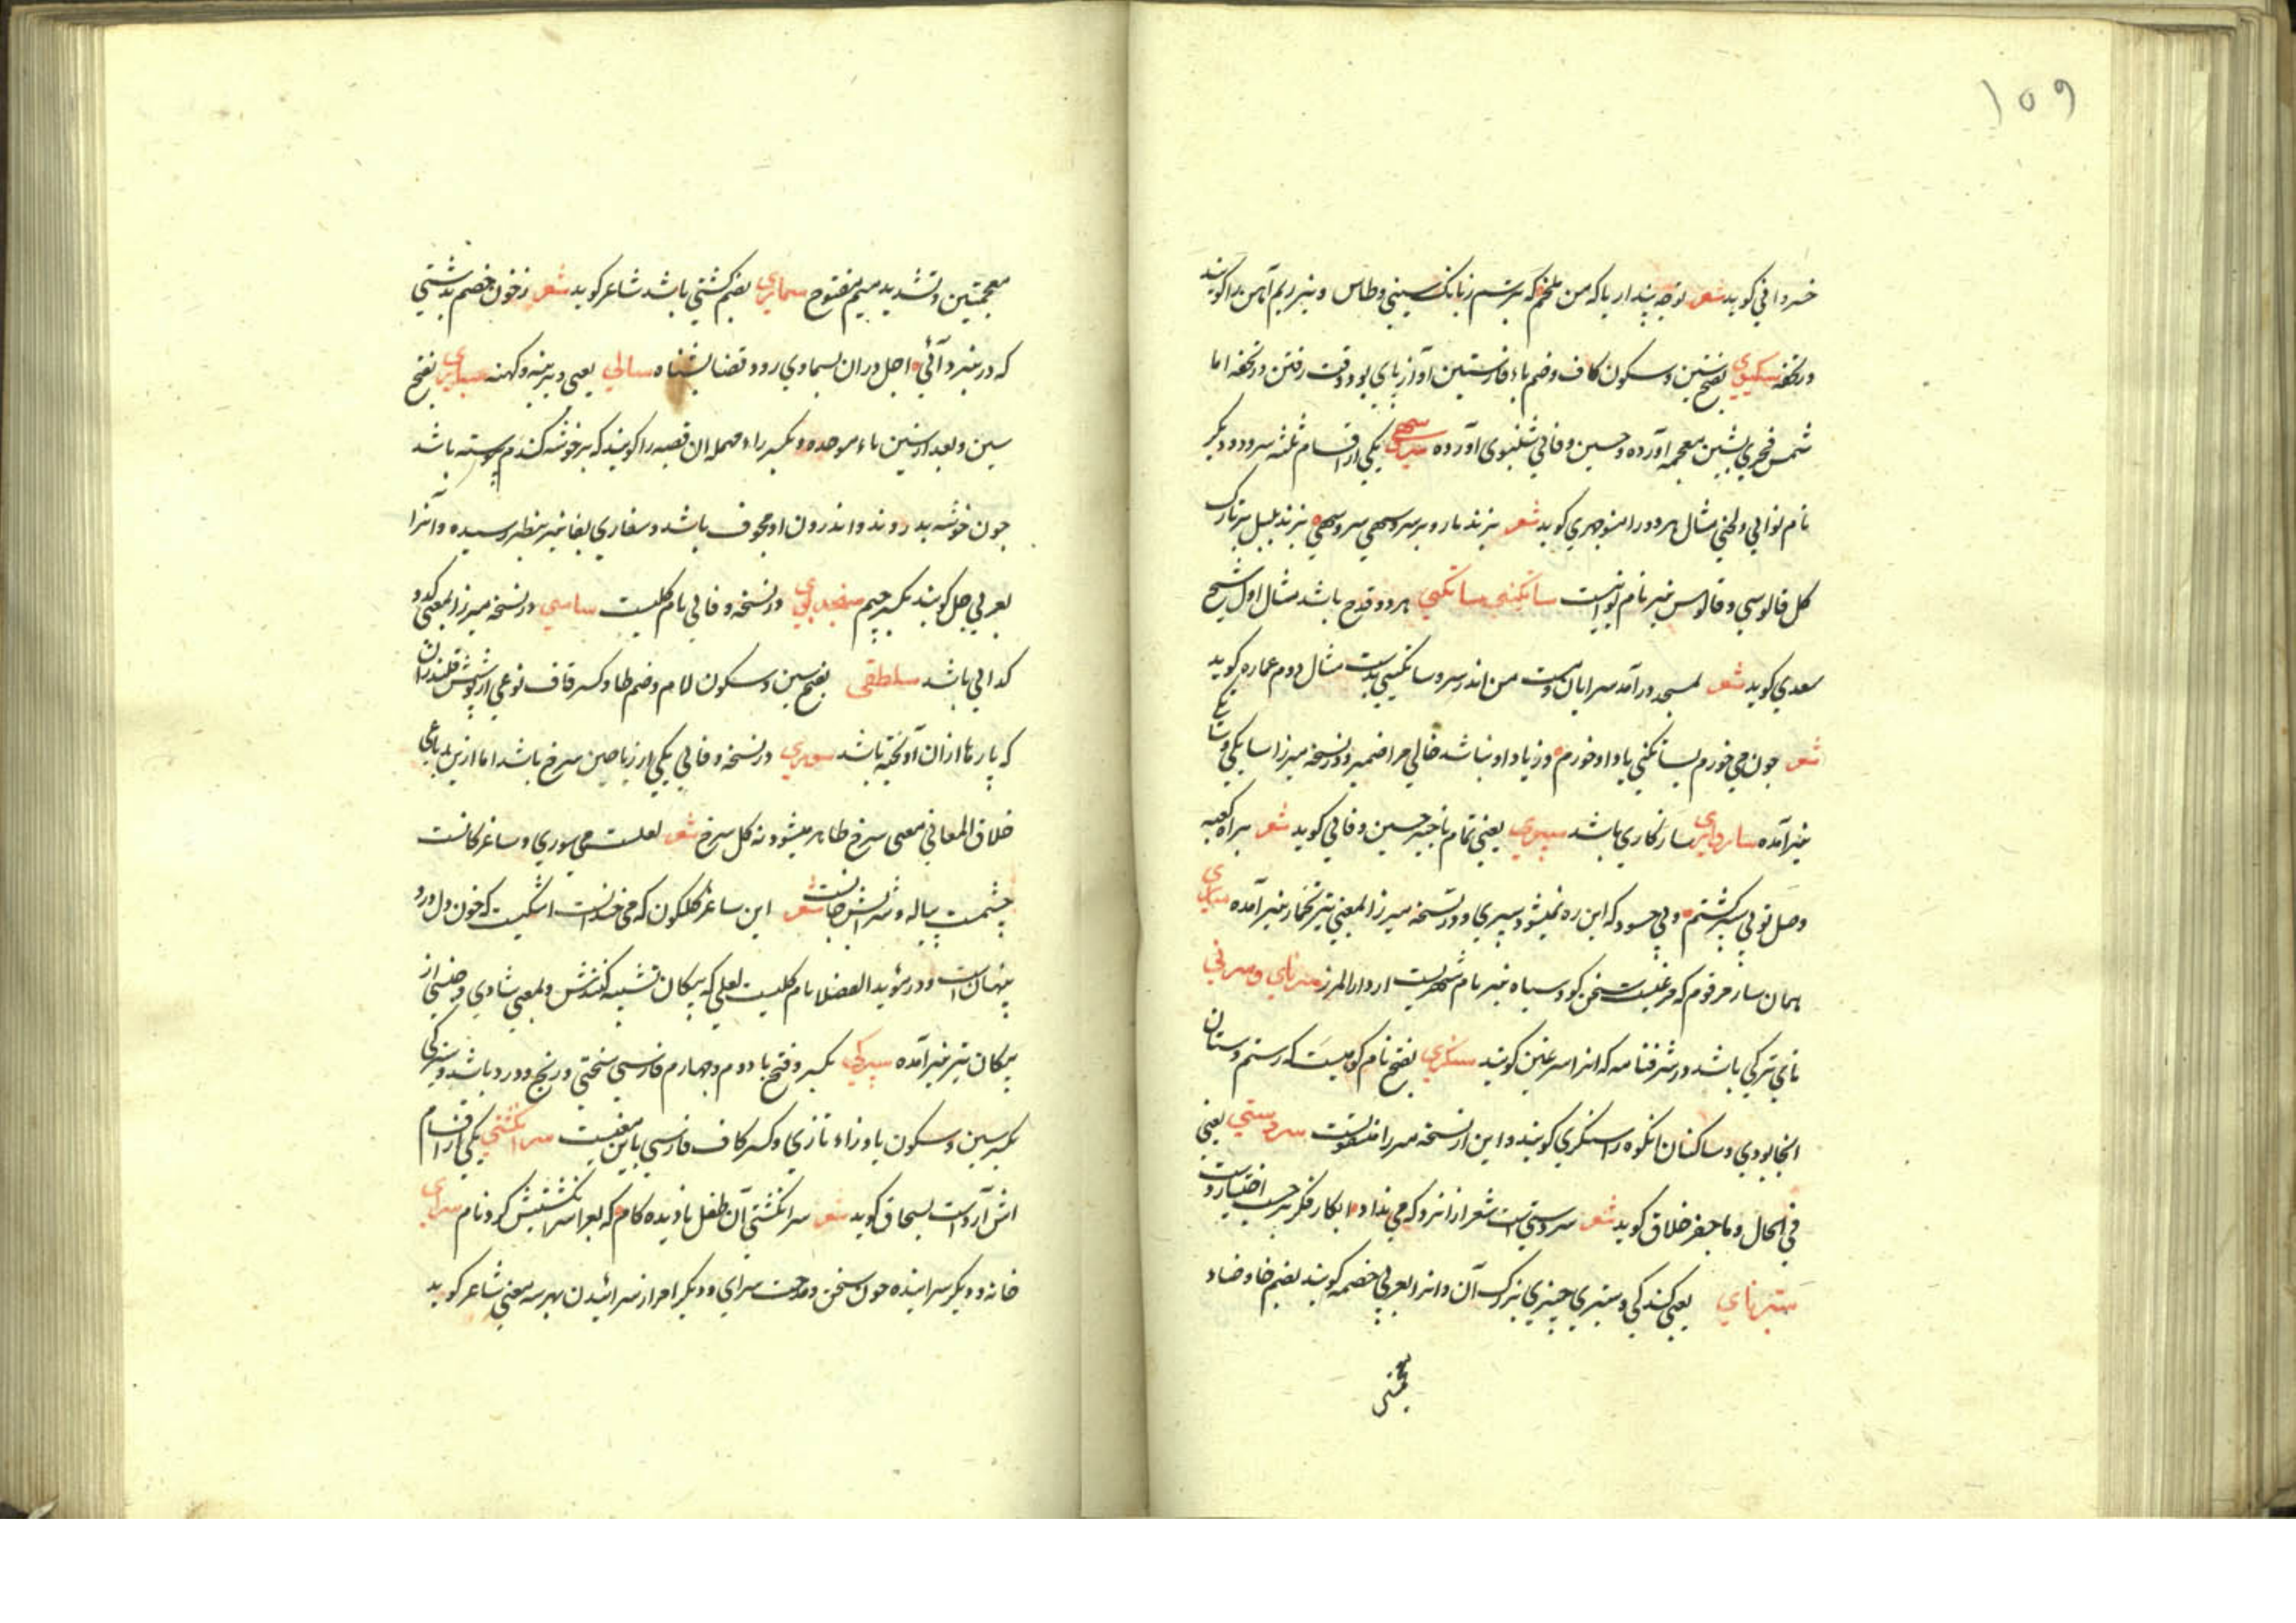 ١٥٩
خسروانی کوید شعر توچه پنداریا که من ملخم که بترسم زبانک سینی وطاس و نیز ریم آهن را کویند
ودرتحفه سکپوی بفتح سین وسکون کاف وضم باء فارسیتین آواز پای بود وقت رفتن ودرتحفه اما
شمس فخری بشین معجمه آورده وحسین وفائی شلپوی آورده سهی یکی از اقسام ثلثه سرو ودیکر
نام نوائی ولحنی مثال هردو را منوچهری کوید شعر بزند نارو بر سرو سهی سرو سهی بزند بلبل بر تارک
کل قالوسی وقالوس نیز نام نوائیست ساتکنی ساتکینی هردو قدح باشد مثال اول شیخ
سعدی کوید شعر لمسجد درآمد سرایان ومست من اندر سر وساتکینی بدست مثال دوم عماره کوید
شعر چون می خورم بساتکنی یاد او خورم وز یاد او نباشد خالی مرا ضمیر ودر نسخه میرزا ساتکی
نیز آمده سازواری سازکاری باشد سپری یعنی تمام ناچیز حسین وفائی کوید شعر براه کعبه
وصل تو پی سپر کشتم ولی چسود که این ره نمیشود سپری ودر نسخه میرزا بمعنی تیر تخمار نیز آمده
همان ساز مرقوم که مرغیست سخن کو وسیاه نیز نام شهریست از دارالمرز سرنای وسرنی
نای ترکی باشد ودر شرفنامه که انرا سرغین کویند سنکری بفتح نام کوهیست که رستم دستان
انجا بودی وساکنان انکوه را سنکری کویند واین از نسخه میرزا منقولست سردستی یعنی
فی الحال وما حضر خلاق کوید شعر سردستی است شعر ازانرو که می نداد ابکار فکر بر حسب اختیار دست
ستبرنای یعنی کندکی وستبری چیزی بزرک آن وانرا بعربی ضخمه کویند بضم خا وضاد
معجمتین وتشدید میم مفتوح سماری بضم کشتی باشد شاعر کوید شعر زخون خصم بدشتی
که در نبرد آئی اجل دران بسماری رود قضا بشناه سالی یعنی دیرینه وکهنه بفتح
سین وبعد از سین باء موحده وبکسر راء مهمله ان قصبه را کویند که بر خوشه کندم پیوسته باشد
چون خوشه بدروند واندرون او مجوف باشد وسفاری بفا نیز بنظر رسیده وآنرا
بعربی جل کویند بکسر جیم در نسخه وفائی نام کلیست ساسی در نسخه میرزا بمعنی کدا و
کدائی باشد سلطقی بفتح سین وسکون لام وضم طا وکسر قاف نوعی از پوشش قلندران
که پارها ازان آویخته باشد سوری در نسخه وفائی یکی از ریاحین سرخ باشد اما ازین رباعی
خلاق المعانی معنی سرخ ظاهر میشود نه کل سرخ شعر لعلت می سوری وساغر کانست
چشمت پیاله وشرابش جانست شعر این ساغر کلکون که می خندانست اشکیست که خون دل درو
پنهانست ودر مؤید الفضلا نام کلیست لعلی که پیکان تشبیه کنندش وبمعنی شادی وجنسی از
پیکان تیر نیز آمده سپرکی بکسر وفتح با دوم وچهارم فارسی سختی ورنج ودرد باشد وسیزکی
بکسر سین وسکون یا وزاء تازی وکسر کاف فارسی باین معنیست سرانکشتی یکی از اقسام
آش آردست بسحاق کوید شعر سرانکشتی آن طفل نادیده کام که بعرا سرانکشتیش کرد نام سرای
خانه ودیکر سراینده چون سخن ومدحت سرای ودیکر امر از سرائیدن بهر سه معنی شاعر کوید